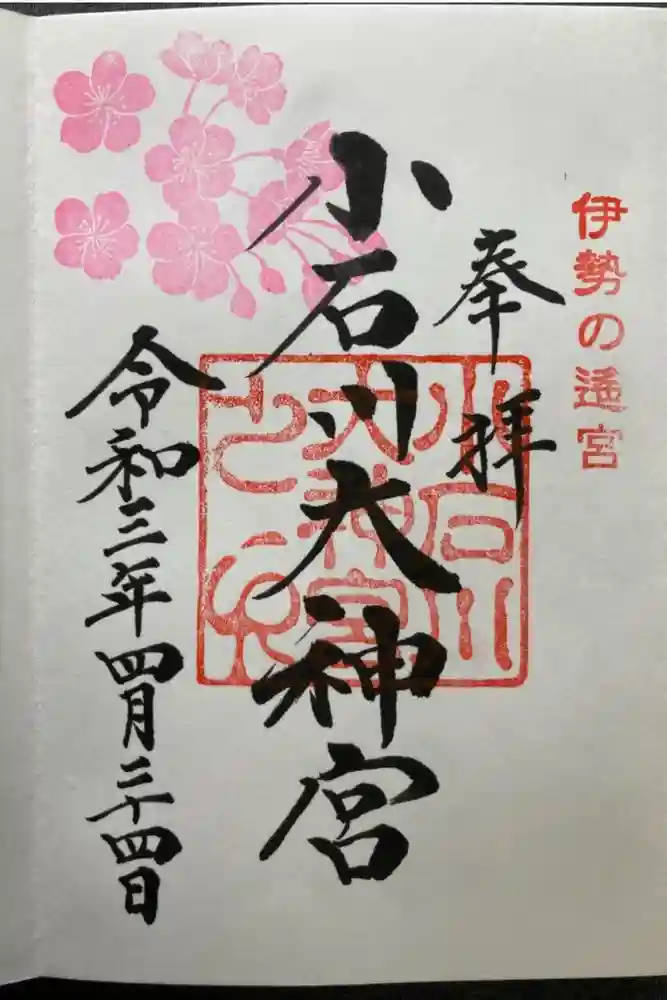 伊勢の遥宮
奉拝
小石川大神宮
令和三年四月二十四日
小石川
大神宮
之印